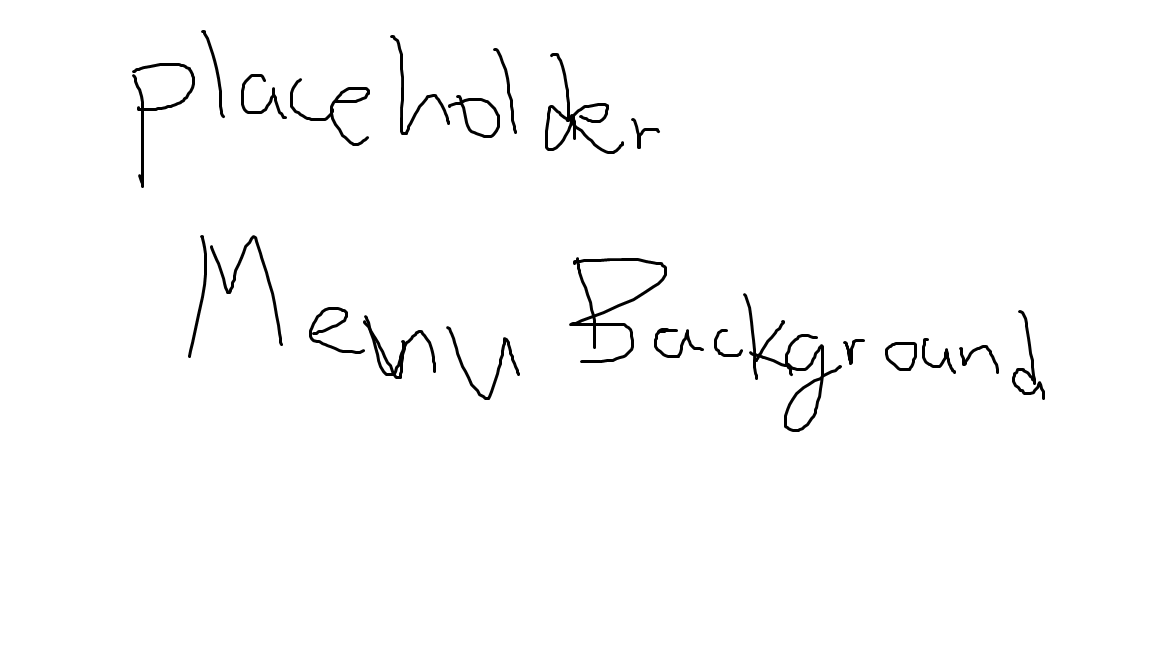 Placeholder
Menu Background